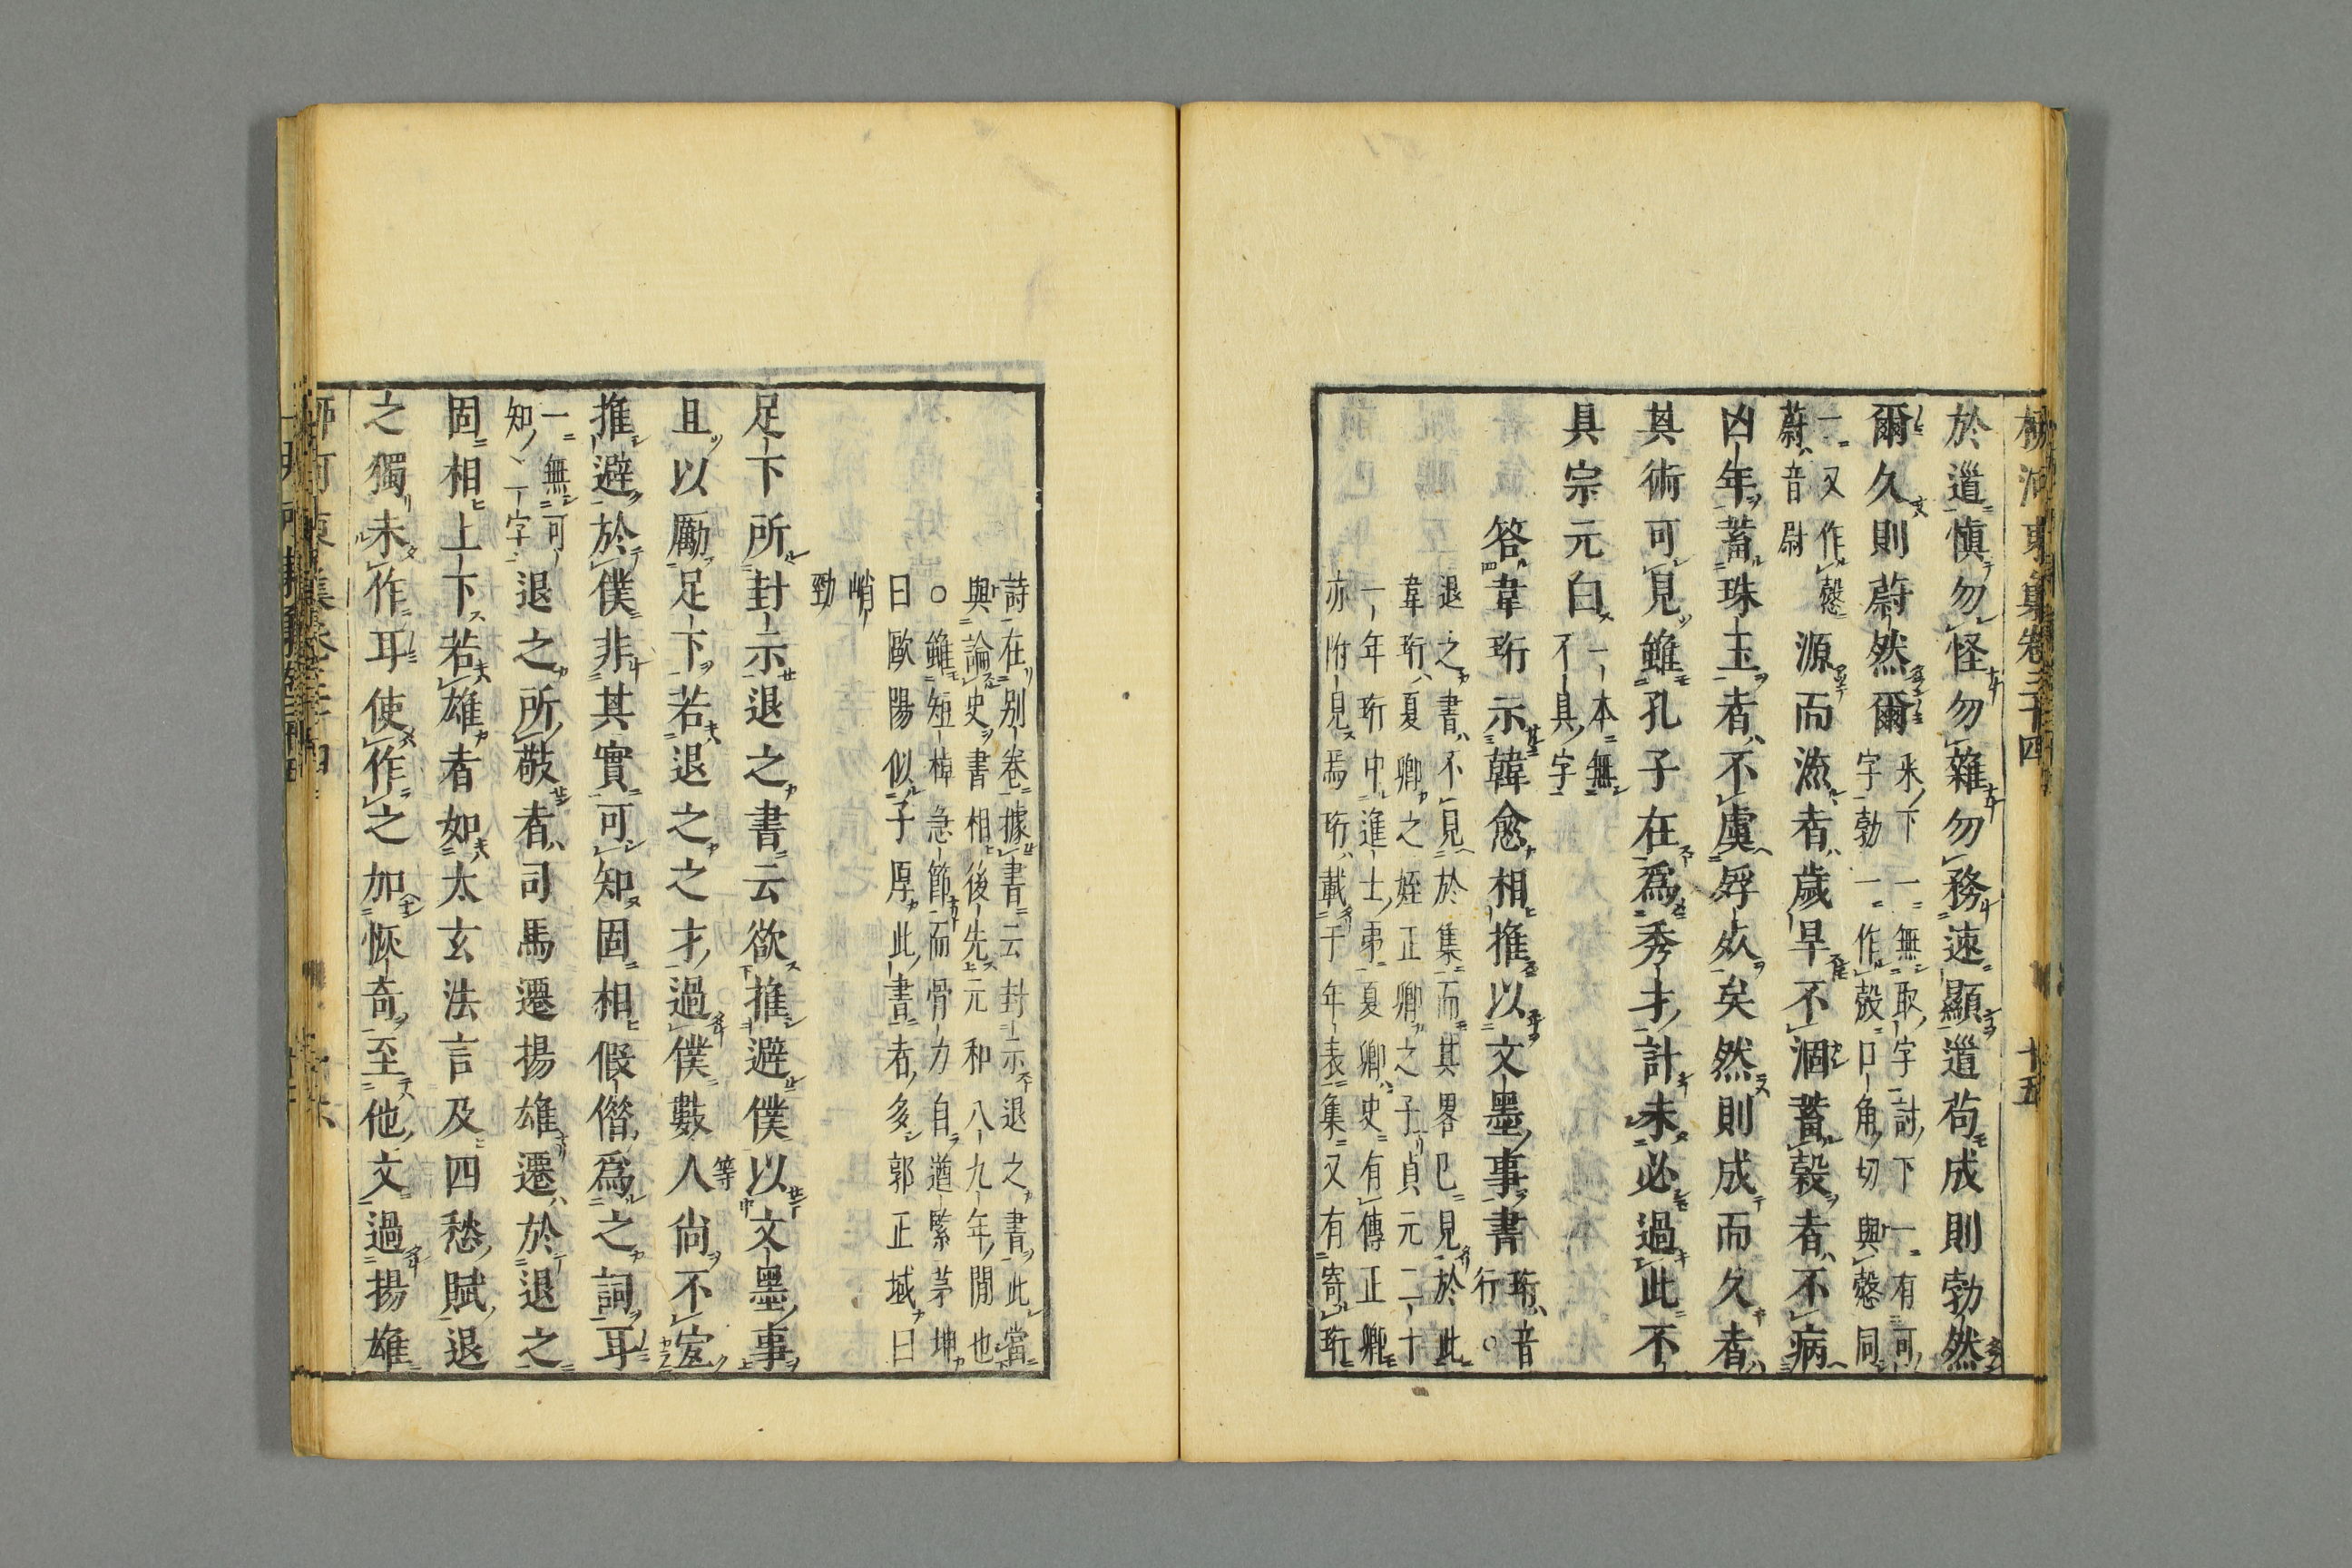 柳河東集卷三十四 十五
於道慎勿怪勿雜勿務速顯道苟成則勃然
爾久則蔚然爾
釆下一無取字討下一有可
字勃一作㱿口角切與慤同
一又作慤
蔚音尉
源而流者歲旱不涸蓄穀者不病
凶年蓄珠玉者不虞殍死矣然則成而久者
其術可見雖孔子在爲秀才計未必過此不
具宗元白
一本無
不具字
答韋珩示韓愈相推以文墨事書
珩音
行○
退之書不見於集而其畧已見於此
韋珩夏卿之姪正卿之子貞元二十
一年珩中進士弟夏卿史有傳正卿
亦附見焉珩載于年表集又有寄珩
詩在别卷據書云封示退之書此當
與論史書相後先元和八九年間也
○雖短棹急節而骨力自遒緊茅坤
曰歐陽似子厚此書者多郭正域曰
峭
勁
足下所封示退之書云欲推避僕以文墨事
且以勵足下若退之之才過僕數人尙不宐
等
推避於僕非其實可知固相假借爲之詞耳
一無可
知二字
退之所敬者司馬遷揚雄遷於退之
固相上下若雄者如太玄法言及四愁賦退
之獨未作耳使作之加恢奇至他文過揚雄